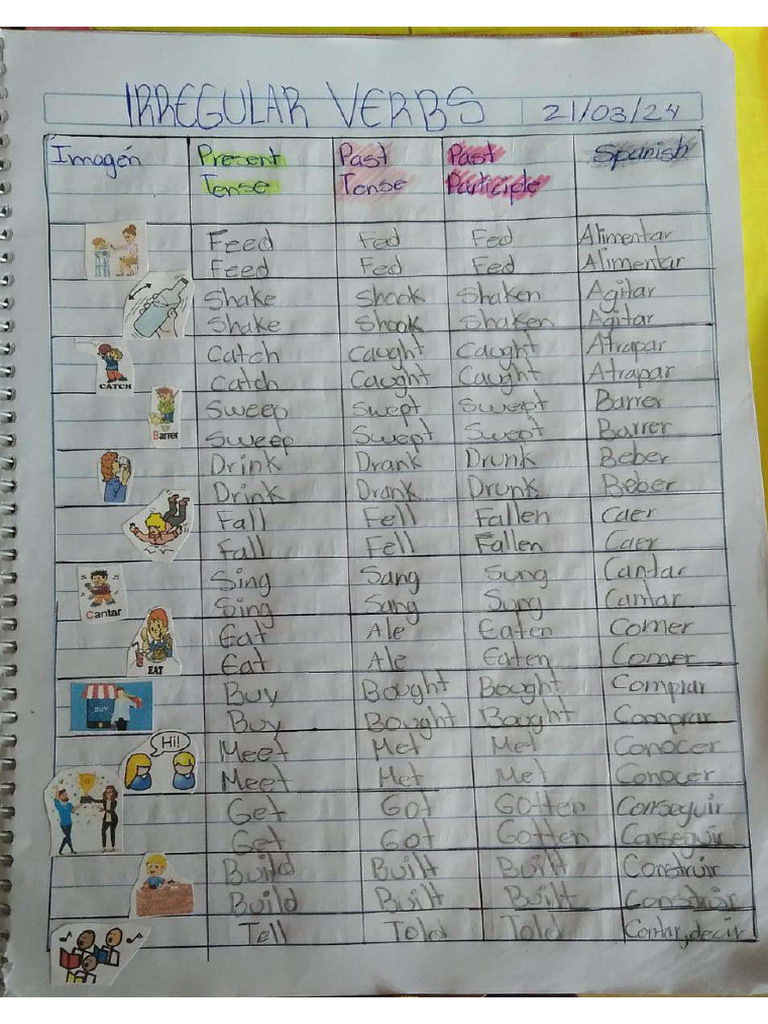 IRREGULAR VERBS 21/03/24
Imagén Precent Past Past Spanish
Tense Tense Participle
Feed Fed Fed Alimentar
Feed Fed Fed Alimentar
Shake Shook Shaken Agitar
Shake Shook Shaken Agitar
Catch Caught Caught Atrapar
CATCH Catch Caught Caught Atrapar
Sweep Swept Swept Barrer
Barrer Sweep Swept Swept Barrer
Drink Drank Drunk Beber
Drink Drank Drunk Beber
Fall Fell Fallen Caer
Fall Fell Fallen Caer
Sing Sang Sung Cantar
Cantar Sing Sang Sung Cantar
Eat Ale Eaten Comer
EAT Eat Ale Eaten Comer
BUY Buy Bought Bought Comprar
Buy Bought Bought Comprar
Hi! Meet Met Met Conocer
Meet Met Met Conocer
Get Got Gotten Conseguir
Get Got Gotten Conseguir
Build Built Built Construir
Build Built Built Construir
Tell Told Told Contar, decir